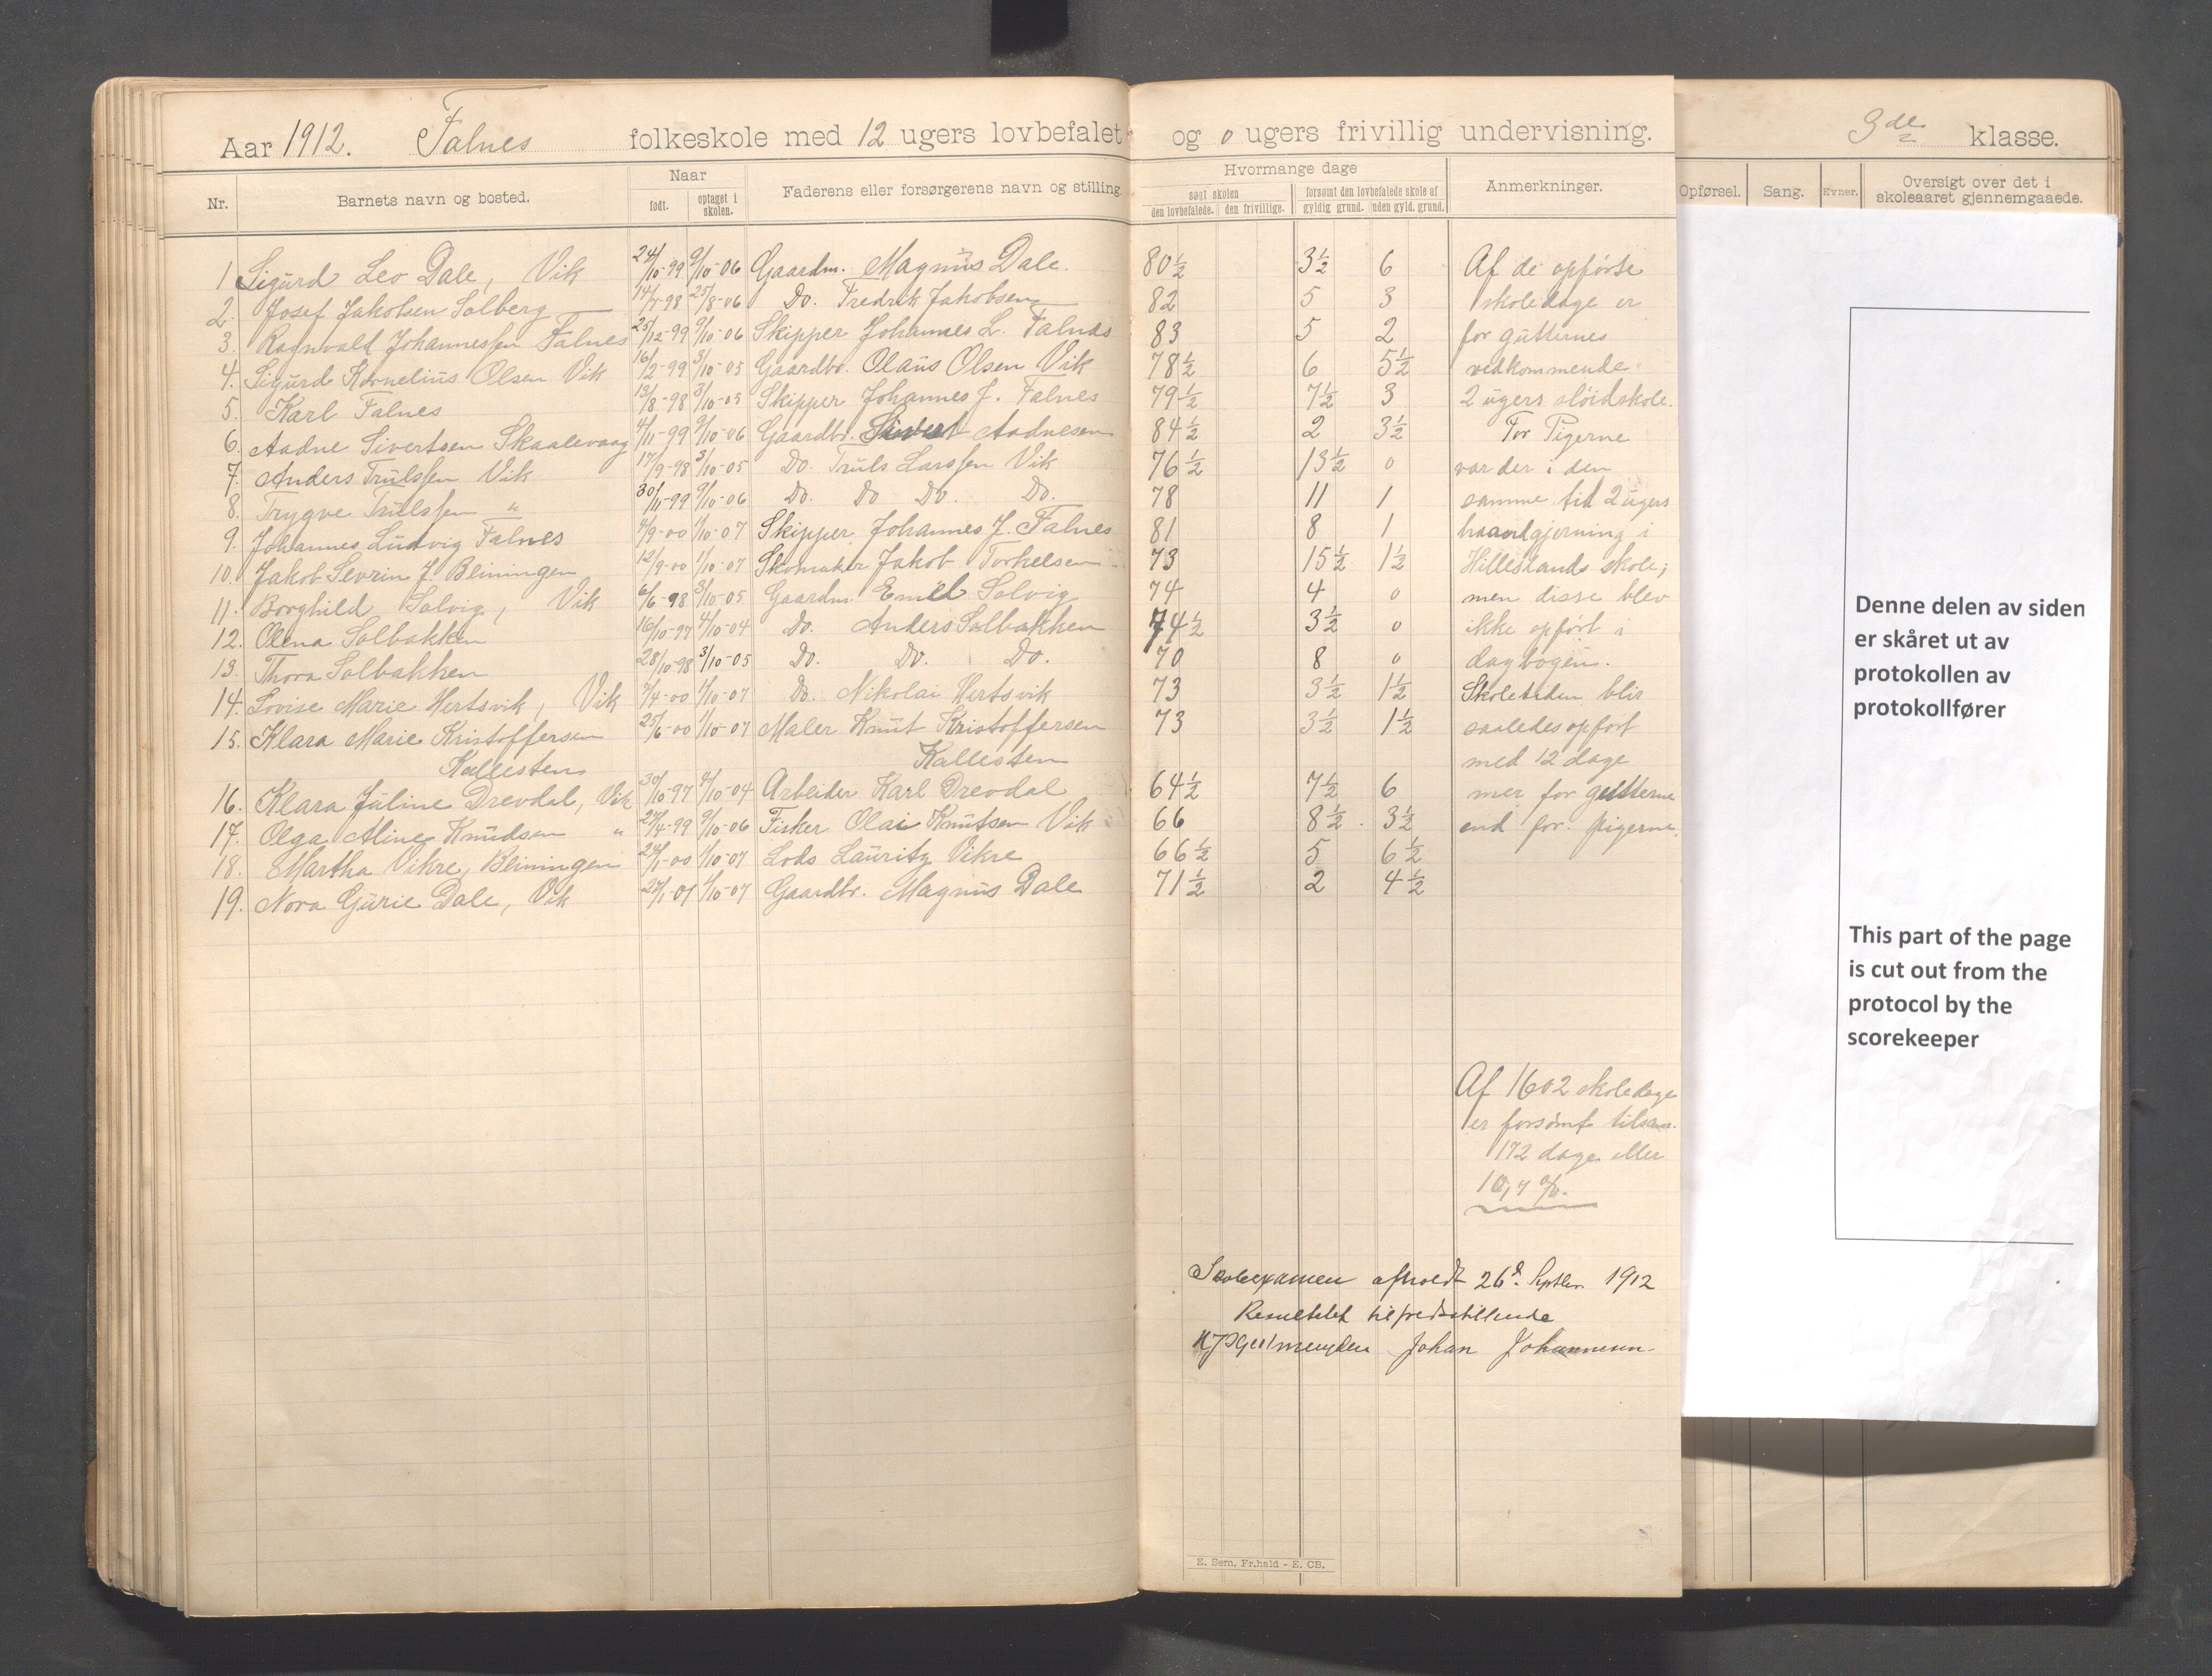 Aar 1912. Falnes folkeskole med 12 ugers lovbefalet og 0 ugers frivillig undervisning. 3de klasse.
Nr. Barnets navn og bosted. Naar født. optaget i skolen. Faderens eller forsørgerens navn og stilling. Hvormange dage søgt skolen den lovbefalede. den frivillige. forsømt den lovbefalede skole af gyldig grund. uden gyld. grund. Anmerkninger. Opførsel. Sang. Evner. Oversigt over det i skoleaaret gjennemgaaede.
1 Sigurd Leo Dale, Vik 24/10-99 9/10-06 Gaardm. Magnus Dale. 80½ 3½ 6 Af de opførte
2. Josef Jakobsen Solberg 14/7-98 25/8-06 Do. Fredrik Jakobsen 82 5 3 skoledage er
3. Ragnvald Johannessen Falnes 25/12-99 9/10-06 Skipper Johannes L. Falnes 83 5 2 for gutternes
4. Sigurd Kornelius Olsen Vik 16/2-99 3/10-05 Gaardbr. Olaus Olsen Vik 78½ 6 5½ vedkommende
5. Karl Falnes 13/8-98 3/10-05 Skipper Johannes J. Falnes 79½ 7½ 3 2 ugers slöidskole.
6. Aadne Sivertsen Skaalevaag 4/11-99 9/10-06 Gaardbr. Sivert Aadnesen 84½ 2 3½ For Pigerne
7. Anders Trulssen Vik 17/9-98 3/10-05 Do. Truls Larssen Vik 76½ 13½ 0 var der i den
8. Trygve Trulssen " 30/11-99 9/10-06 Do. Do Do. Do. 78 11 1 samme tid 2 ugers
9. Johannes Ludvig Falnes 4/9-00 1/10-07 Skipper Johannes J. Falnes 81 8 1 haandgjerning i
10. Jakob Sevrin J. Bleiningen 12/9-00 1/10-07 Skomaker Jakob Torkelsen 73 15½ 1½ Hillestands skole;
11. Borghild Solvig, Vik 6/6-98 3/10-05 Gaardm. Emil Solvig 74 4 0 men disse blev
12. Olena Solbakken 16/10-97 4/10-04 Do. Anders Solbakken 74½ 3½ 0 ikke opført i
13. Thora Solbakken 28/10-98 3/10-05 Do. Do. Do. 70 8 0 dagbogen.
14. Lovise Marie Hertsvik, Vik 7/4-00 1/10-07 Do. Nikolai Hertsvik 73 3½ 1½ Skoletiden blir
15. Klara Marie Kristoffersen 25/6-00 1/10-07 Maler Knut Kristoffersen 73 3½ 1½ saaledes opført
Kallesten Kallesten med 12 dage
16. Klara Juline Drevdal, Vik 30/10-97 4/10-04 Arbeider Karl Drevdal 64½ 7½ 6 mer for gutterne
17. Olga Aline Knudsen " 27/4-99 9/10-06 Fisker Olai Knutsen Vik 66 8½ 3½ end for pigerne.
18. Martha Vikre, Bleiningen 24/1-00 1/10-07 Lods Lauritz Vikre 66½ 5 6½
19. Nora Gurie Dale, Vik 27/1-01 1/10-07 Gaardbr. Magnus Dale 71½ 2 4½
Af 1602 skoledage
er forsömt tilsam.
172 dage eller
10,7 %.
Skoleexamen afholdt 26d. Septbr. 1912
Resultatet tilfredsstillende
Johan Johannesen
E. Sem, Fr.hald - E. CB.
Denne delen av siden
er skåret ut av
protokollen av
protokollfører
This part of the page
is cut out from the
protocol by the
scorekeeper